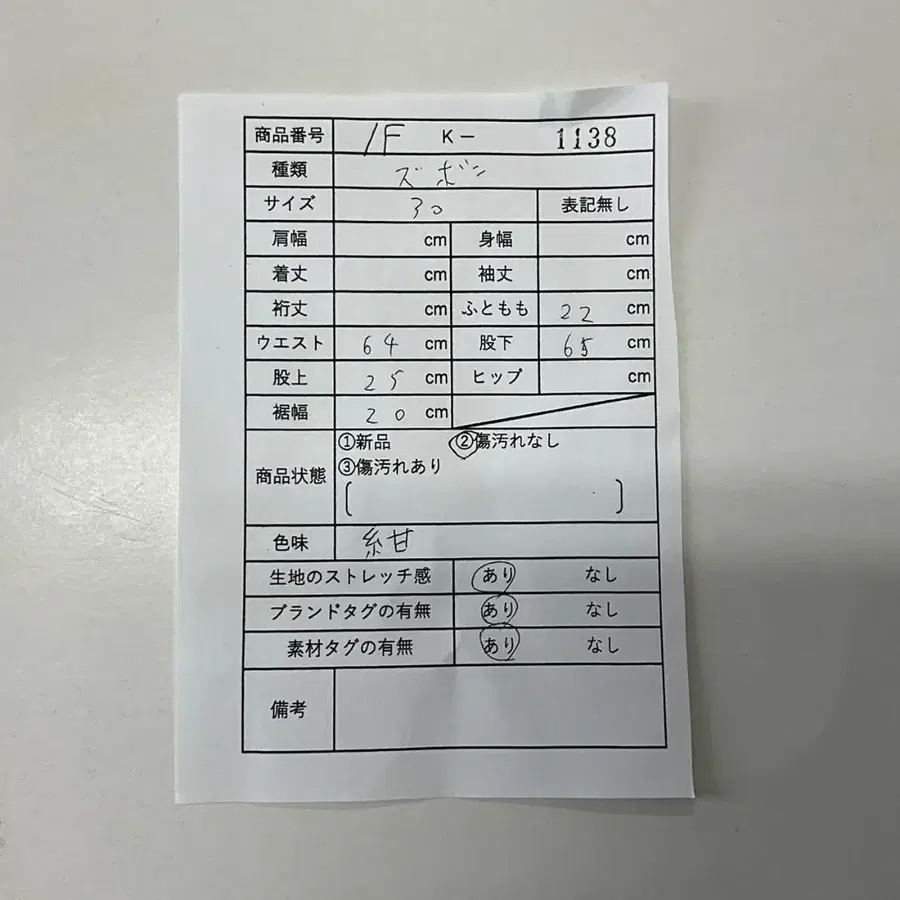 商品番号 1F K ー 1138
種類 ズボン
サイズ 30 表記無し
肩幅 cm 身幅 cm
着丈 cm 袖丈 cm
裄丈 cm ふともも 22 cm
ウエスト 64 cm 股下 65 cm
股上 25 cm ヒップ cm
裾幅 20 cm
商品状態 ①新品 ②傷汚れなし
③傷汚れあり
( )
色味 紺
生地のストレッチ感 あり なし
ブランドタグの有無 あり なし
素材タグの有無 あり なし
備考